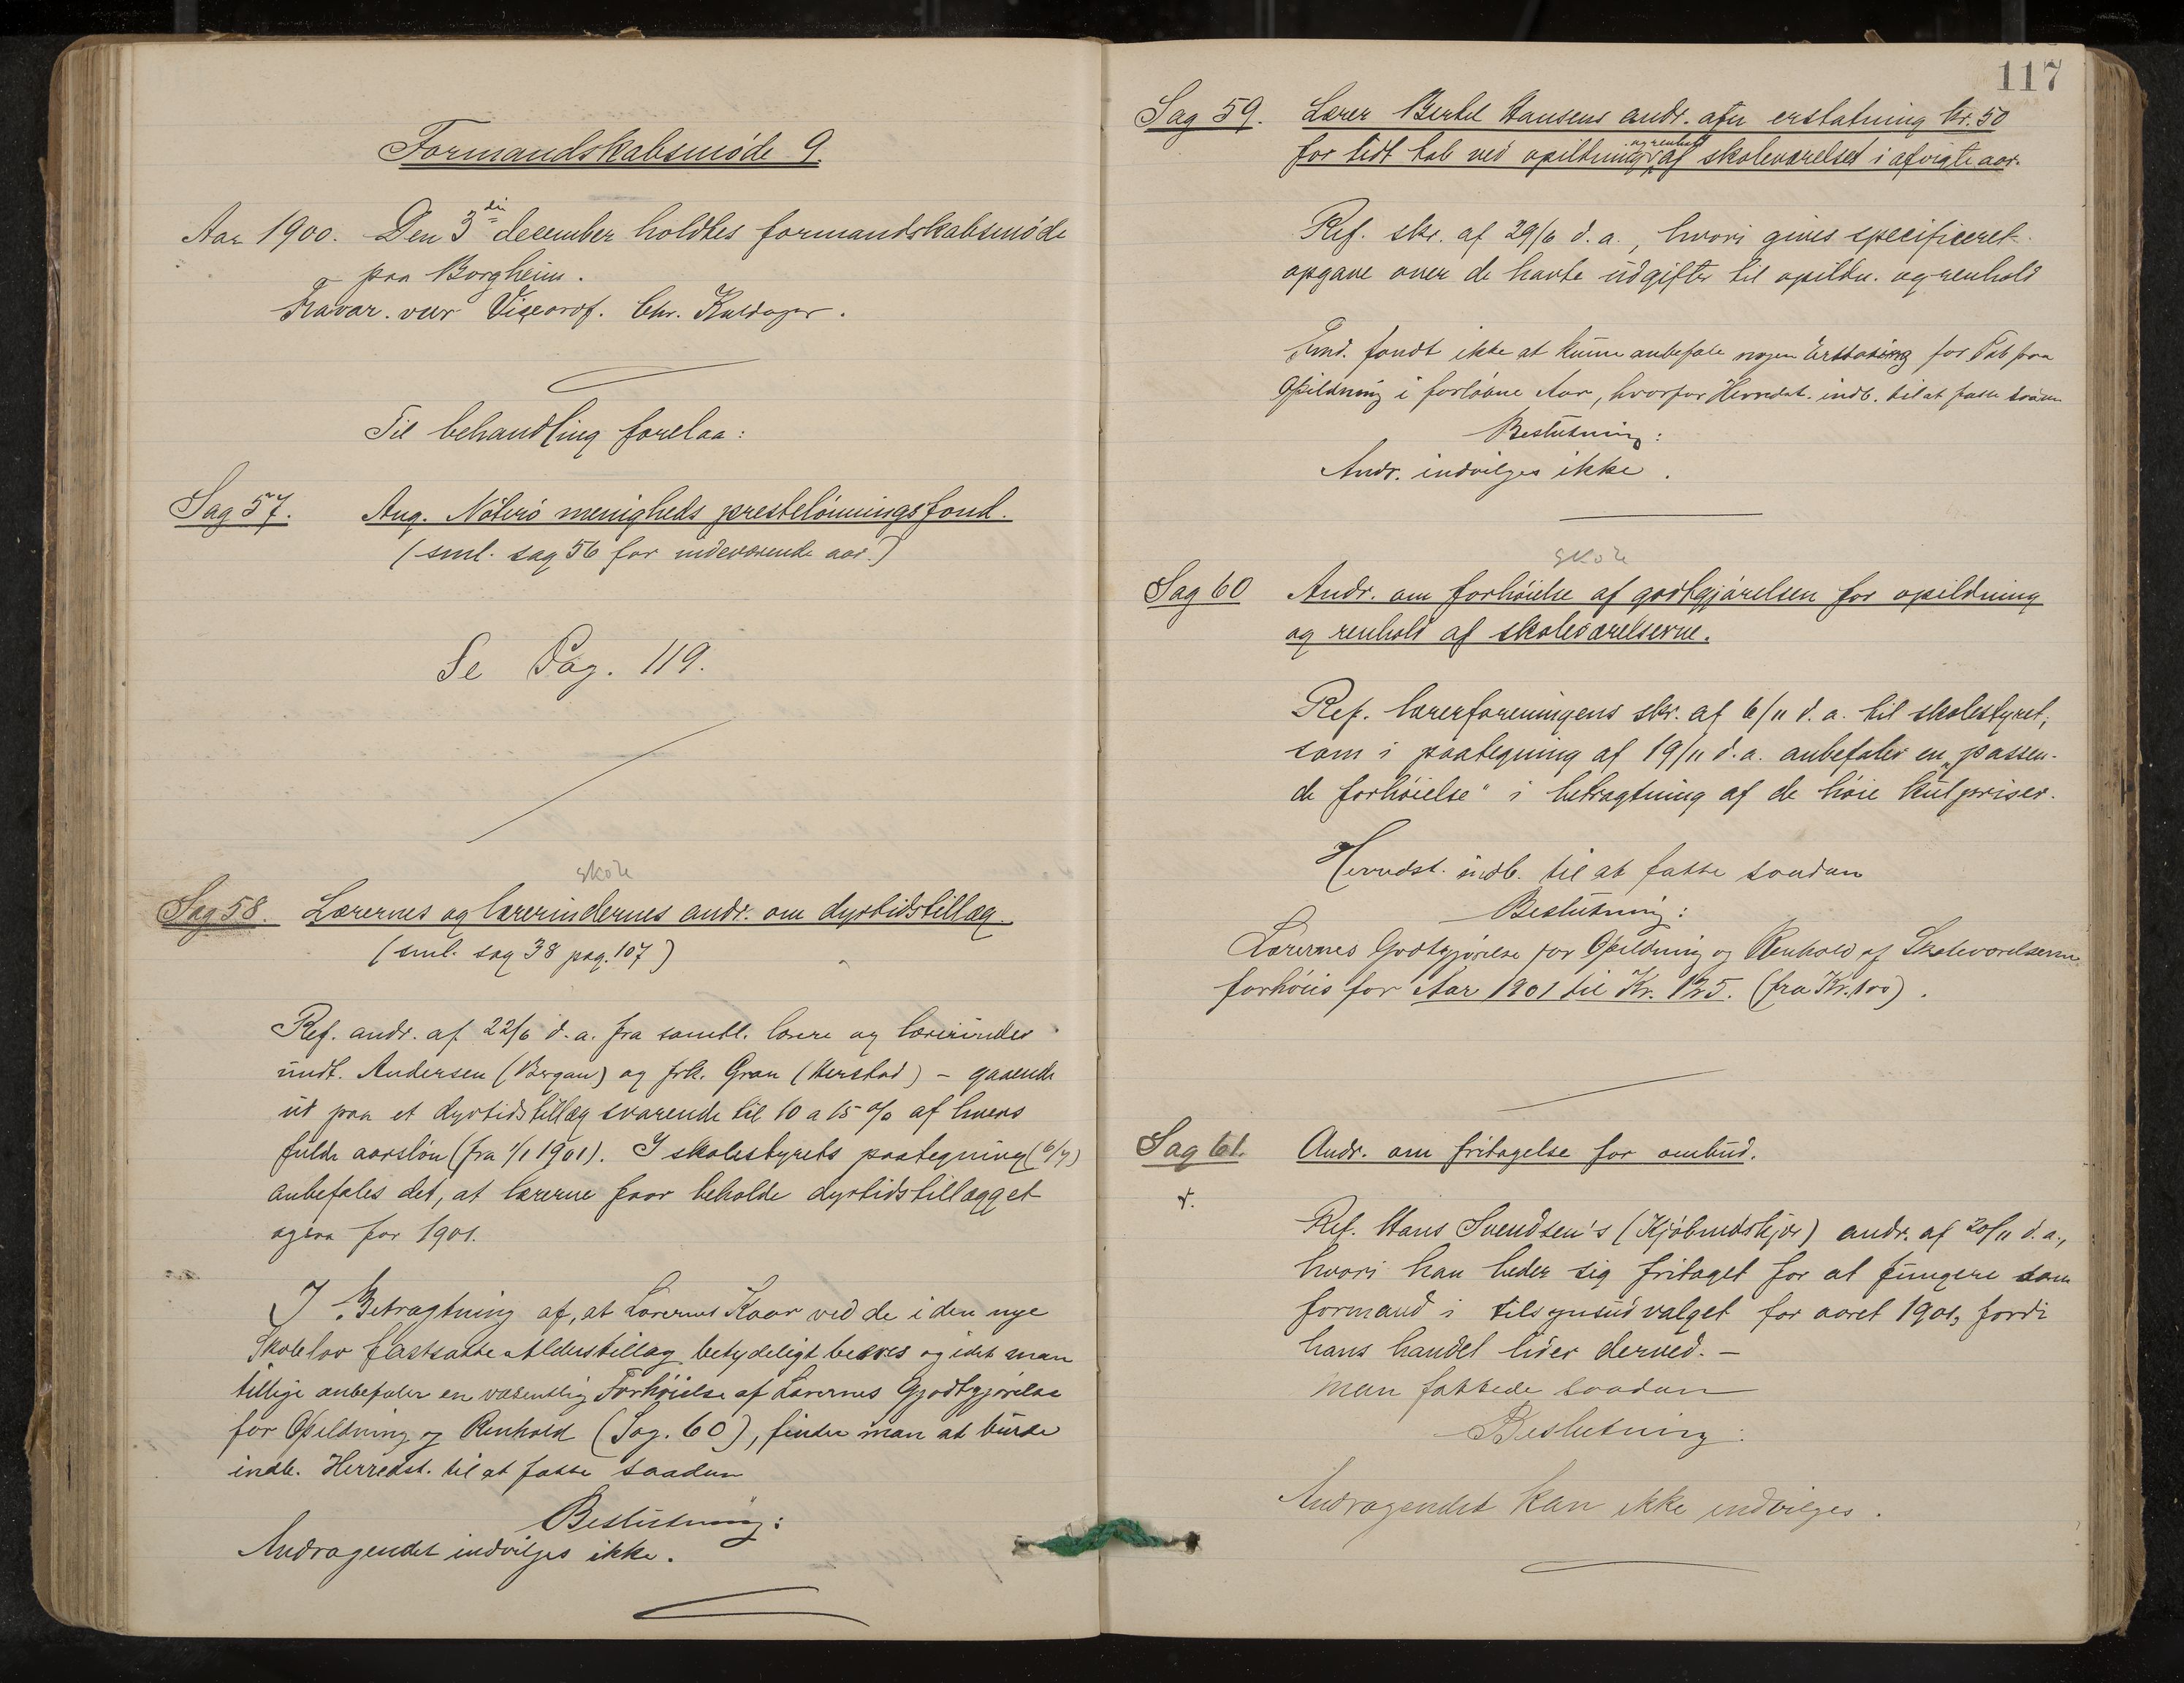 Formandskabsmöde 9.
Aar 1900. Den 3die december holdtes formandskabsmöde
paa Borgheim.
Fravær. var Viceordf. Chr. Kaldager.
Til behandling forelaa:
Sag 57. Ang. Nöterö menigheds prestelönningsfond.
(sml. sag 56 for indeværende aar.)
Se Pag. 119.
skole
Sag 58. Lærernes og lærerindernes andr. om dyrtidstillæg.
(sml. sag 38 pag. 107)
Ref. andr. af 22/6 d. a. fra samtl. lærere og lærerinder
undt. Andersen (Bergan) og frk. Gran (Herstad) – gaaende
ud paa et dyrtidstillæg svarende til 10 a 15 % af hvers
fulde aarslön (fra 1/1 1901). I skolestyrets paategning (6/7)
anbefales det, at lærerne faar beholde dyrtidstillægget
ogsaa for 1901.
I Betragtning af, at Lærernes Kaar ved de i den nye
Skolelov fastsatte Alderstillæg betydeligt bedres og idet man
tillige anbefaler en væsentlig Forhöielse af Lærernes Godtgjörelse
for Opildning og Renhold (Sag. 60), finder man at burde
indb. Herredst. til at fatte saadan
Beslutning:
Andragendet indvilges ikke.
117
Sag 59. Lærer Bertel Hansens andr. om erstatning kr. 50
og renhold
for lidt tab ved opildning af skoleværelset i afvigte aar.
Ref. skr. af 29/6 d. a., hvori gives specificeret
opgave over de havte udgifter til opildn. og renhold
Fmd. fandt ikke at kunne anbefale nogen Erstatning for Tab paa
Opildning i forlöbne Aar, hvorfor Herredst. indb. til at fatte saadan
Beslutning:
Andr. indvilges ikke.
skole
Sag 60 Andr. om forhöielse af godtgjörelsen for opildning
og renhold af skoleværelserne.
Ref. lærerforeningens skr. af 6/11 d. a. til skolestyret,
som i paategning af 19/11 d. a. anbefaler en „passen-
de forhöielse" i betragtning af de höie kulpriser.
Herredst. indb. til at fatte saadan
Beslutning:
Lærernes Godtgjörelse for Opildning og Renhold af Skoleværelserne
forhöies for Aar 1901 til Kr. 125. (fra Kr. 100).
Sag 61. Andr. om fritagelse for ombud.
+.
Ref. Hans Svendsen's (Kjöbmdskjær) andr. af 20/11 d. a.,
hvori han beder sig fritaget for at fungere som
formand i tilsynsudvalget for aaret 1901, fordi
hans handel lider derved. –
Man fattede saadan
Beslutning:
Andragendet kan ikke indvilges.